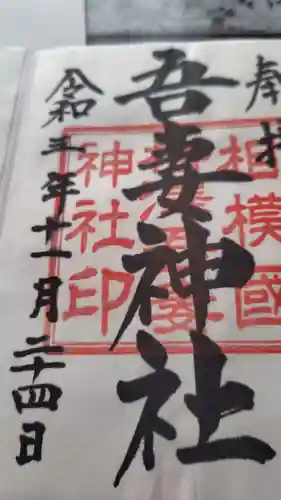 奉拝
吾妻神社
相模國
吾妻
神社印
令和五年十一月二十四日